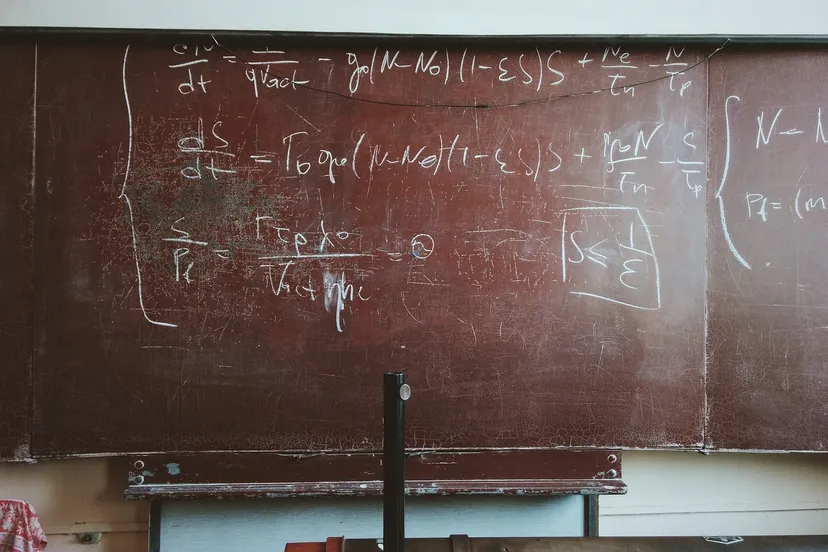 dN/dt = I/qVact - g₀(N-N₀)(1-εS)S + Ne/τn - N/τp
dS/dt = Γ₀g₀(N-N₀)(1-εS)S + N/τn - S/τp
S/Pf = Γτpλ₀/Vactηhc = ⓐ
S ≤ 1/ε
N - N
Pf = (m